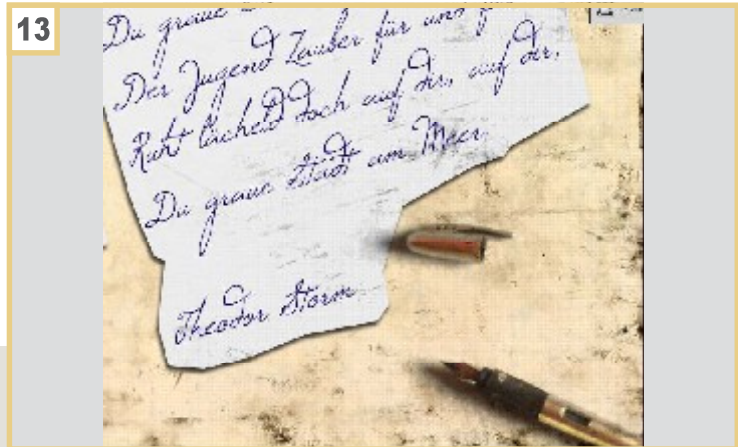 13
Du graue
Der Jugend Zauber für und
Ruht lächelnd doch auf dir, auf dir,
Du graue Stadt am Meer.
Theodor Storm